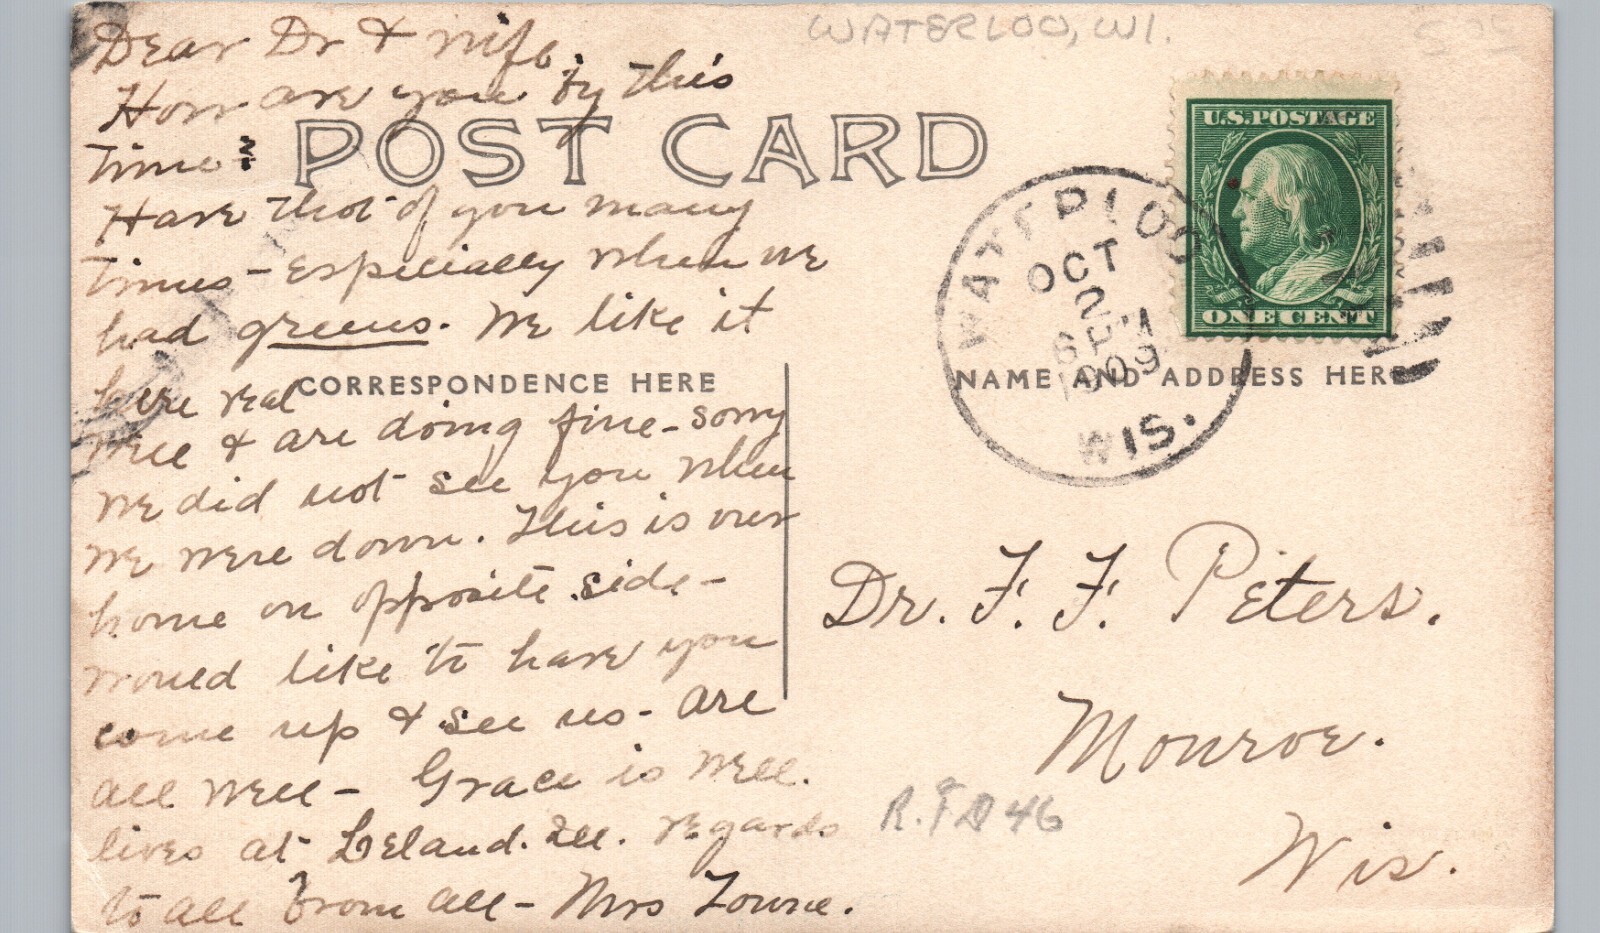 WATERLOO, WI.
Dear Dr & Wife.
How are you by this
time?
Have thot of you many
times - Especially when we
had greens. We like it
here real
well & are doing fine - sorry
we did not see you when
we were down. This is our
home on opposite side -
would like to have you
come up & see us - are
all well - Grace is well.
lives at Leland. Ill. regards
to all from all - Mrs Towne.
POST CARD
CORRESPONDENCE HERE
NAME AND ADDRESS HERE
U.S. POSTAGE
ONE CENT
WATERLOO
OCT
2
6 PM
1909
WIS.
Dr. F. F. Peters.
Monroe.
R.F D 46
Wis.